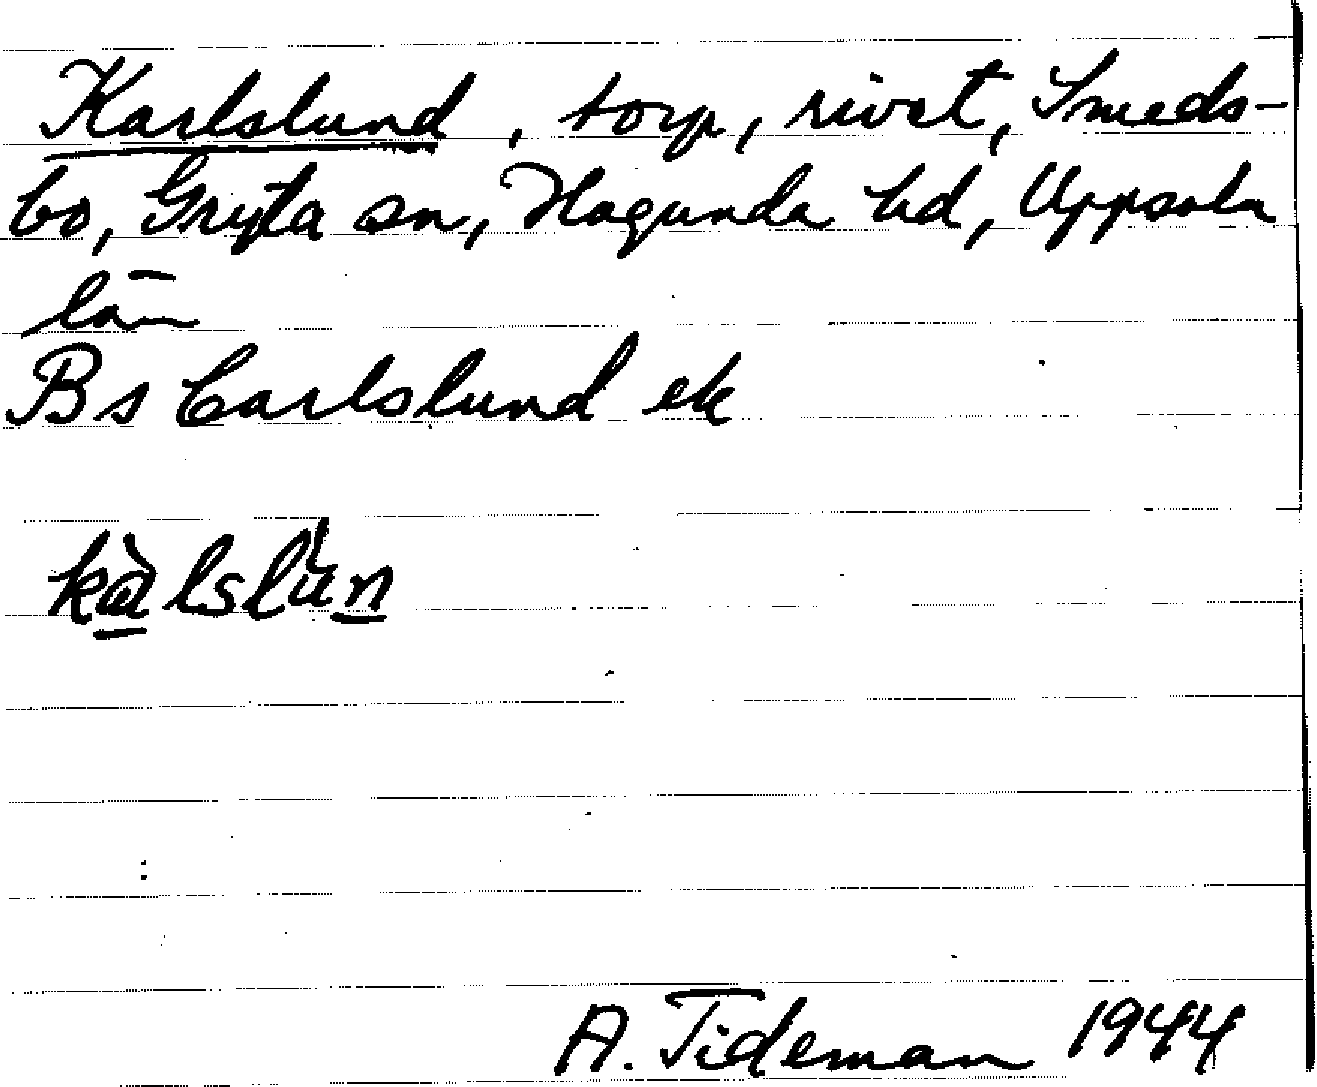 Karlslund, torp, rivet, Smeds-
bo, Gryta sn, Hagunda hd, Uppsala
län
Bs Carlslund ek
kàlslún
A. Tideman 1944